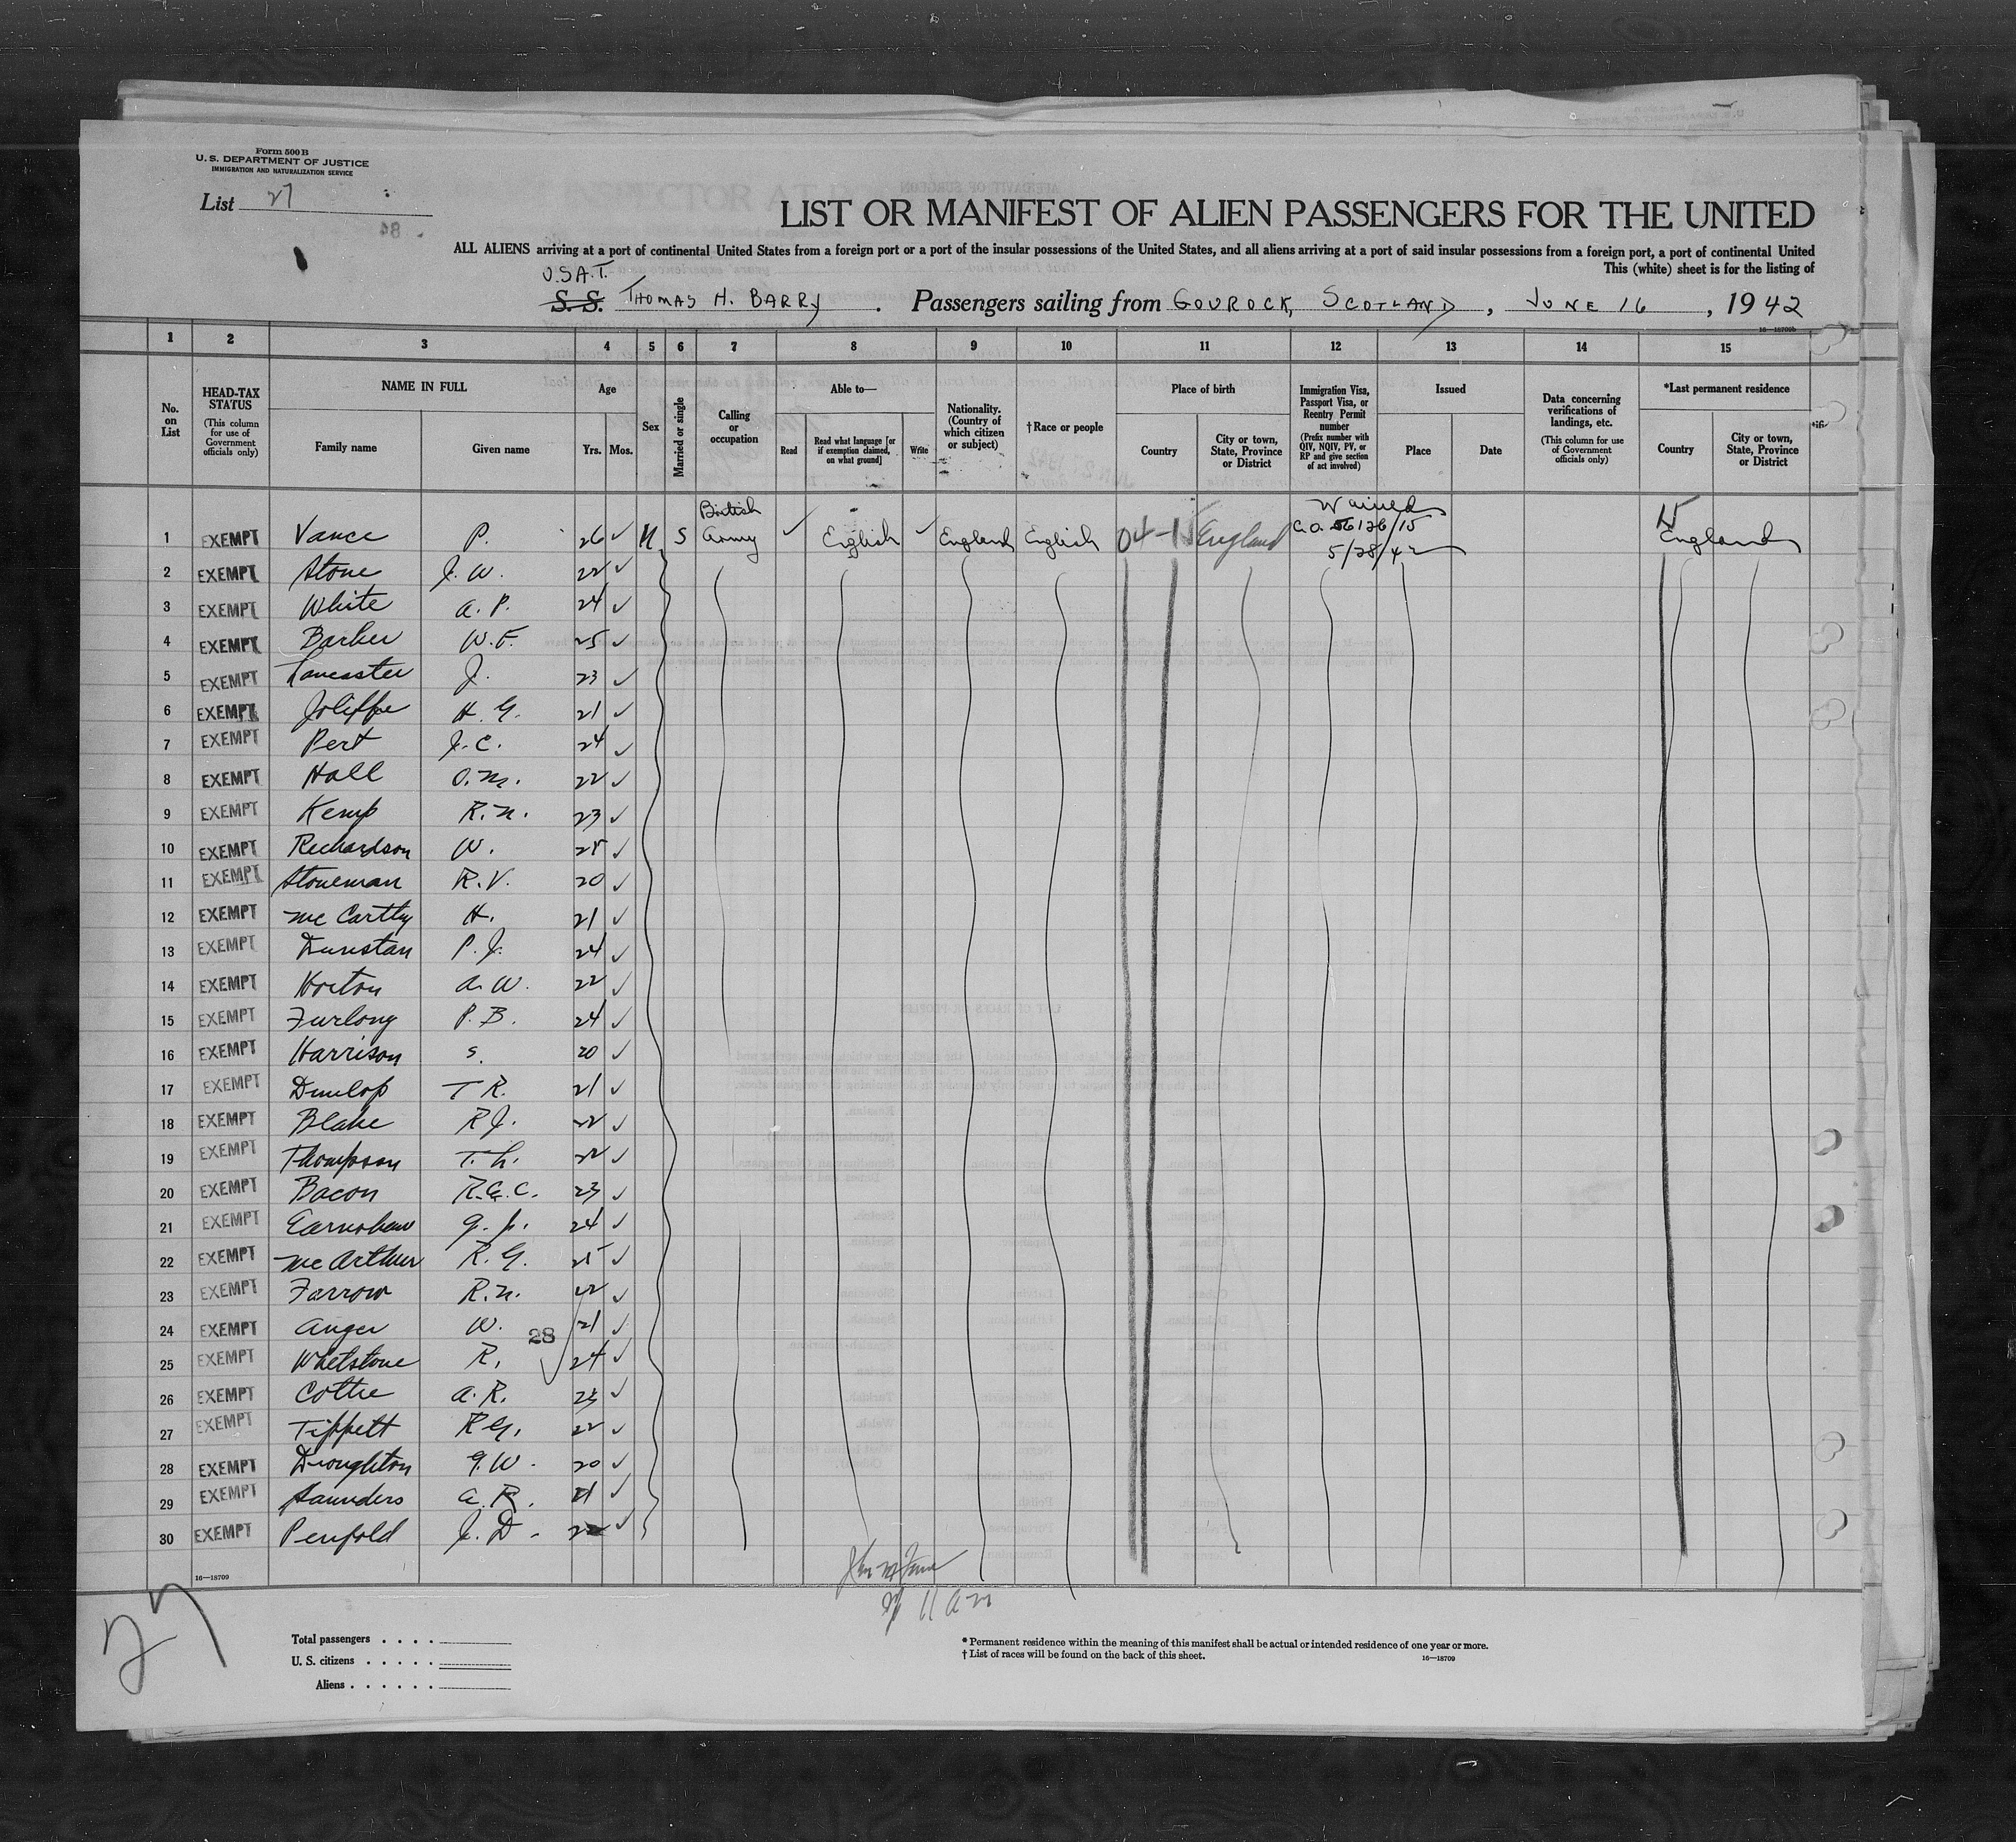 Form 500 B
U. S. DEPARTMENT OF JUSTICE
IMMIGRATION AND NATURALIZATION SERVICE
List 27
LIST OR MANIFEST OF ALIEN PASSENGERS FOR THE UNITED
ALL ALIENS arriving at a port of continental United States from a foreign port or a port of the insular possessions of the United States, and all aliens arriving at a port of said insular possessions from a foreign port, a port of continental United
This (white) sheet is for the listing of
U.S.A.T.
S. S. THOMAS H. BARRY . Passengers sailing from GOUROCK, SCOTLAND, JUNE 16, 1942
16—18709b
1 2 3 4 5 6 7 8 9 10 11 12 13 14 15
No. on List
HEAD-TAX STATUS (This column for use of Government officials only)
NAME IN FULL
Family name Given name
Age
Yrs. Mos.
Sex
Married or single
Calling or occupation
Able to—
Read Read what language [or if exemption claimed, on what ground] Write
Nationality. (Country of which citizen or subject)
†Race or people
Place of birth
Country City or town, State, Province or District
Immigration Visa, Passport Visa, or Reentry Permit number (Prefix number with QIV, NQIV, PV, or RP and give section of act involved)
Issued
Place Date
Data concerning verifications of landings, etc. (This column for use of Government officials only)
*Last permanent residence
Country City or town, State, Province or District
1 EXEMPT Vance P. 26 ✓ M S British Army ✓ English ✓ England English 04-15 England Waived C.O. 56126/15 5/28/42 England
2 EXEMPT Stone J. W. 22 ✓
3 EXEMPT White A. P. 24 ✓
4 EXEMPT Barber W. F. 25 ✓
5 EXEMPT Lancaster J. 23 ✓
6 EXEMPT Joliffe H. G. 21 ✓
7 EXEMPT Pert J. C. 24 ✓
8 EXEMPT Hall O. M. 22 ✓
9 EXEMPT Kemp R. N. 23 ✓
10 EXEMPT Richardson W. 25 ✓
11 EXEMPT Stoneman R. V. 20 ✓
12 EXEMPT McCartly H. 21 ✓
13 EXEMPT Dunstan P. J. 24 ✓
14 EXEMPT Horton A. W. 22 ✓
15 EXEMPT Furlong P. B. 24 ✓
16 EXEMPT Harrison S. 20 ✓
17 EXEMPT Dunlop T R. 21 ✓
18 EXEMPT Blake R J. 22 ✓
19 EXEMPT Thompson T. L. 22 ✓
20 EXEMPT Bacon R. G. C. 23 ✓
21 EXEMPT Earnshaw G. 24 ✓
22 EXEMPT McArthur R. G. 25 ✓
23 EXEMPT Farrow R. N. 22 ✓
24 EXEMPT Anger W. 28 21 ✓
25 EXEMPT Whetstone R. 24 ✓
26 EXEMPT Cottie A. R. 23 ✓
27 EXEMPT Tippett R G. 22 ✓
28 EXEMPT Droughton G. W. 20 ✓
29 EXEMPT Saunders A. R. 21 ✓
30 EXEMPT Penfold J. D. 22 ✓
16—18709
27
Total passengers
U. S. citizens
Aliens
* Permanent residence within the meaning of this manifest shall be actual or intended residence of one year or more.
† List of races will be found on the back of this sheet.
16—18709